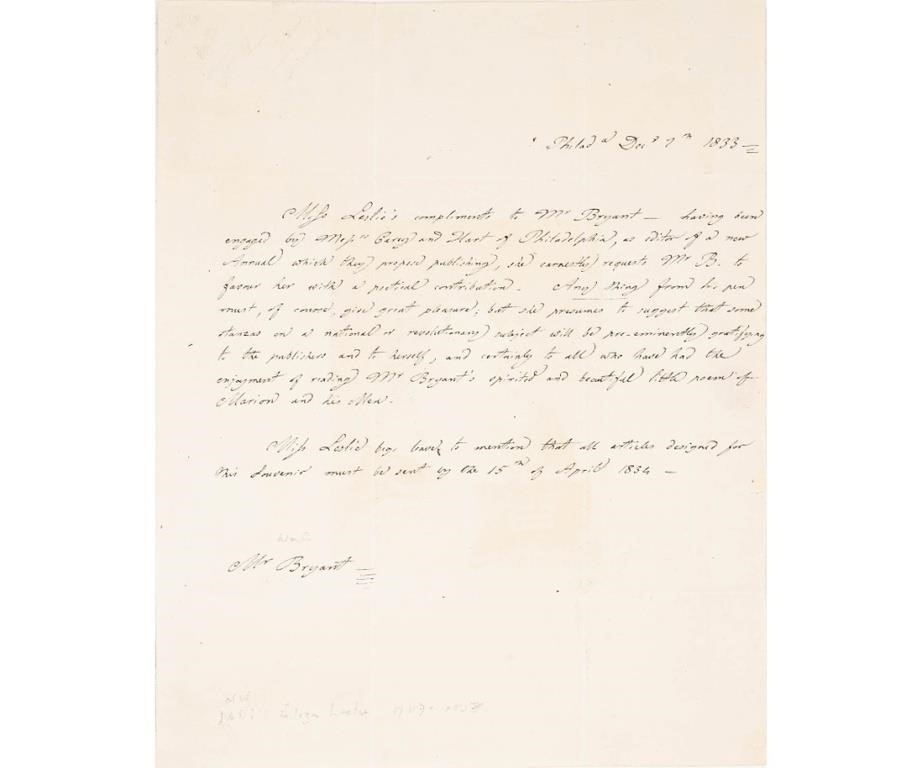 Philad.a Dec.r 7th 1833
Miss Leslie's compliments to Mr Bryant — having been
engaged by Mess.rs Carey and Hart of Philadelphia, as editor of a new
Annual which they propose publishing, she earnestly requests Mr B. to
favour her with a poetical contribution. Any thing from his pen
must, of course, give great pleasure; but she presumes to suggest that some
stanzas on a national or revolutionary subject will be pre-eminently gratifying
to the publishers and to herself, and certainly to all who have had the
enjoyment of reading Mr Bryant's spirited and beautiful little poem of
Marion and his Men.
Miss Leslie begs leave to mention that all articles designed for
this Souvenir must be sent by the 15th of April 1834 —
Wm C.
Mr Bryant
Leslie